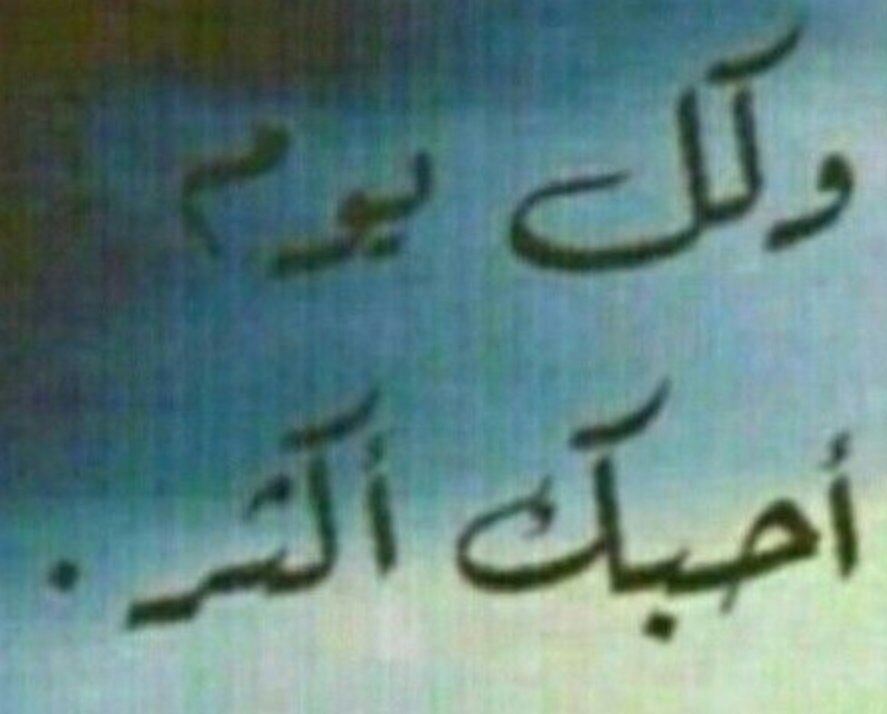 وكل يوم
أحبك أكثر .